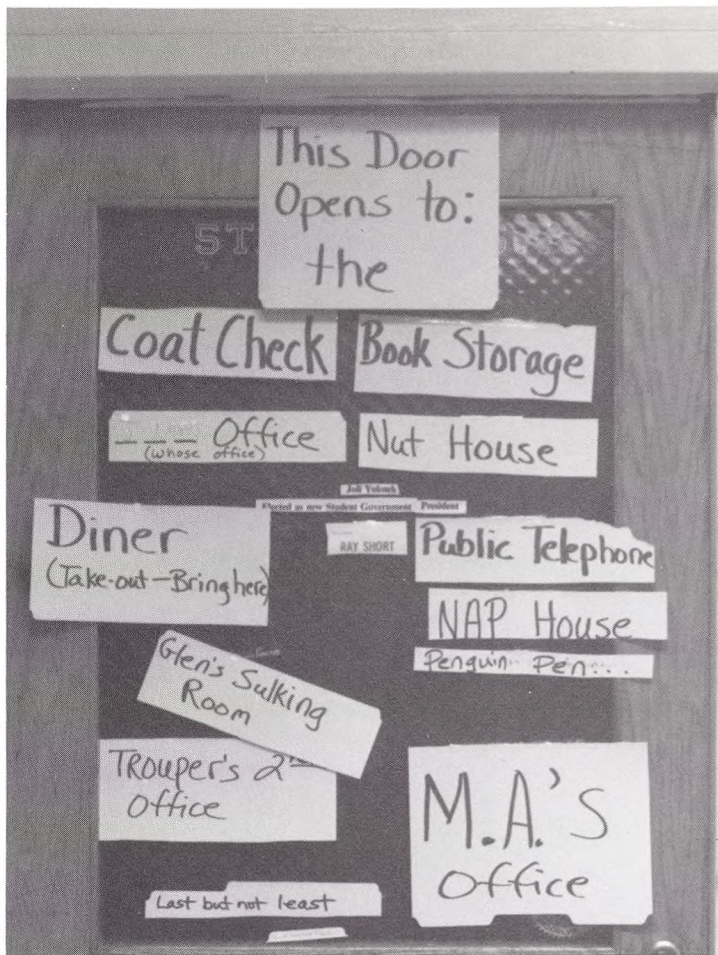 This Door
Opens to:
the
ST
Coat Check
Book Storage
___ Office
(whose office)
Nut House
Elected as new Student Government President
RAY SHORT
Diner
(Take-out-Bring here)
Public Telephone
NAP House
Penguin Pen...
Glen's Sulking
Room
TRouper's 2nd
Office
M.A.'s
Office
Last but not least